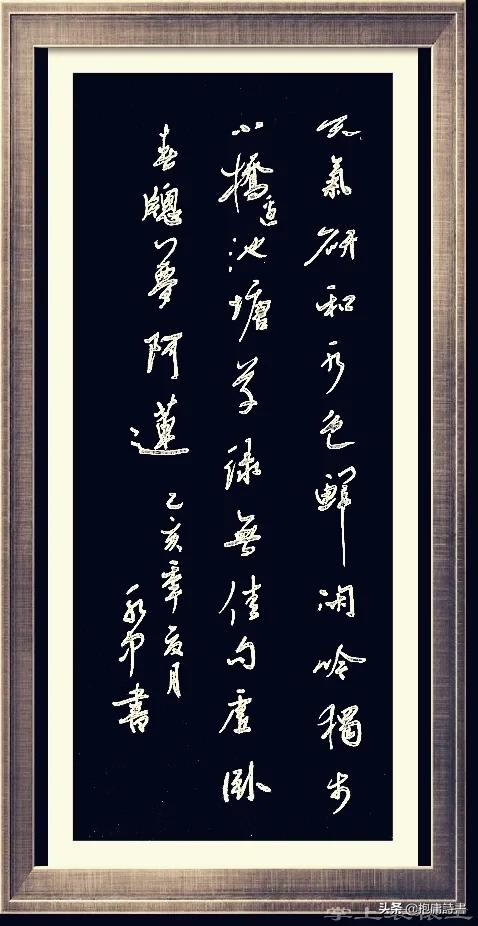 天氣研和水色鮮閑吟獨步
小橋邊池塘草綠無佳句虛臥
春牕夢阿蓮
乙亥年亥月
書
头条 @抱庸詩書